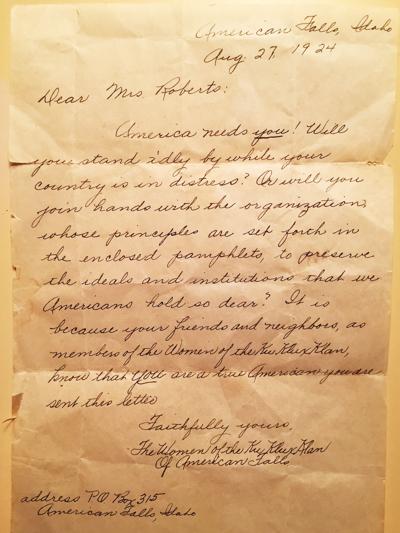 American Falls, Idaho
Aug. 27, 1924
Dear Mrs. Roberts:
America needs you! Will
you stand idly by while your
country is in distress? Or will you
join hands with the organization,
whose principles are set forth in
the enclosed pamphlets, to preserve
the ideals and institutions that we
Americans hold so dear? It is
because your friends and neighbors, as
members of the Women of the Ku Klux Klan,
know that you are a true American you are
sent this letter
Faithfully yours,
The Women of the Ku Klux Klan
Of American Falls
address P.O. Box 315
American Falls, Idaho